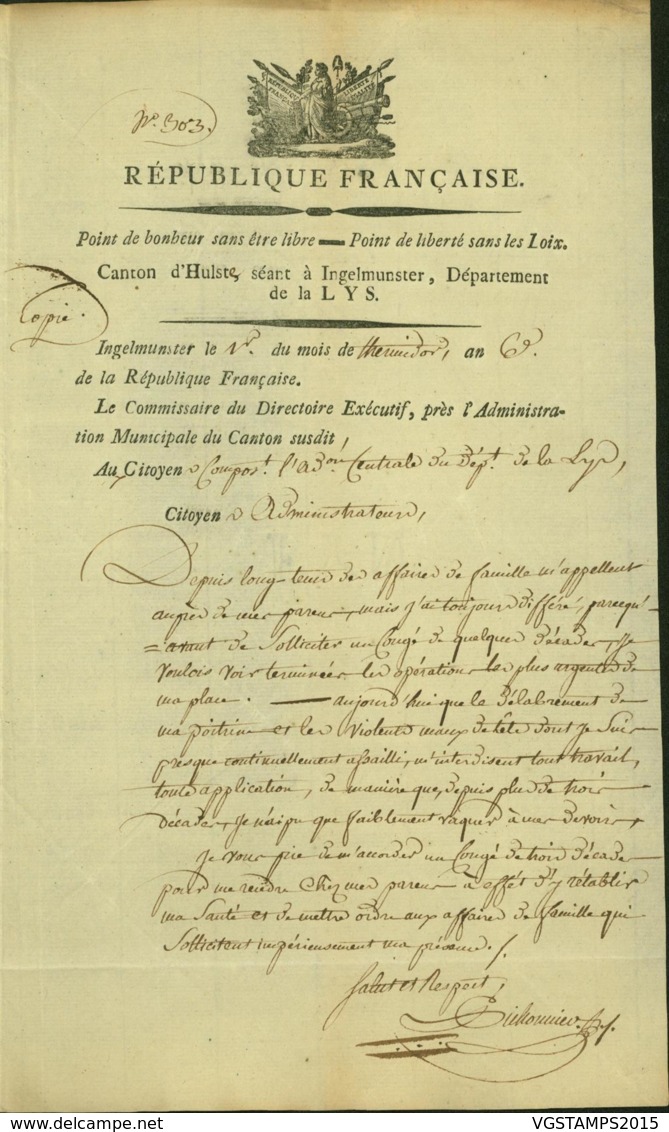 N.º 303.
RÉPUBLIQUE FRANÇAISE
LIBERTÉ ÉGALITÉ
RÉPUBLIQUE FRANÇAISE.
Point de bonheur sans être libre — Point de liberté sans les Loix.
Canton d'Hulste, séant à Ingelmunster, Département
de la LYS.
Copie.
Ingelmunster le 1er. du mois de thermidor, an 6e.
de la République Française.
Le Commissaire du Directoire Exécutif, près l'Administra-
tion Municipale du Canton susdit,
Aux Citoyens Compost. l'adon. Centrale du Dépt. de la Lys,
Citoyens Administrateurs,
Depuis long-tems des affaires de famille m'appellent
auprès de mes parens, mais j'ai toujours différé, parcequ'
=avant de solliciter un Congé de quelques décades, je
voulois voir terminées les opérations les plus urgentes de
ma place. — aujourd'hui que le délabrement de
ma poitrine et les violents maux de tête dont je suis
presque continuellement assailli, m'interdisent tout travail,
toute application, de manière que, depuis plus de trois
décades, je n'ai pu que faiblement vaquer à mes devoirs,
je vous prie de m'accorder un Congé de trois décades
pour me rendre chez mes parens à effet d'y rétablir
ma santé et de mettre ordre aux affaires de famille qui
sollicitent impérieusement ma présence./.
Salut et Respect,
VGSTAMPS2015